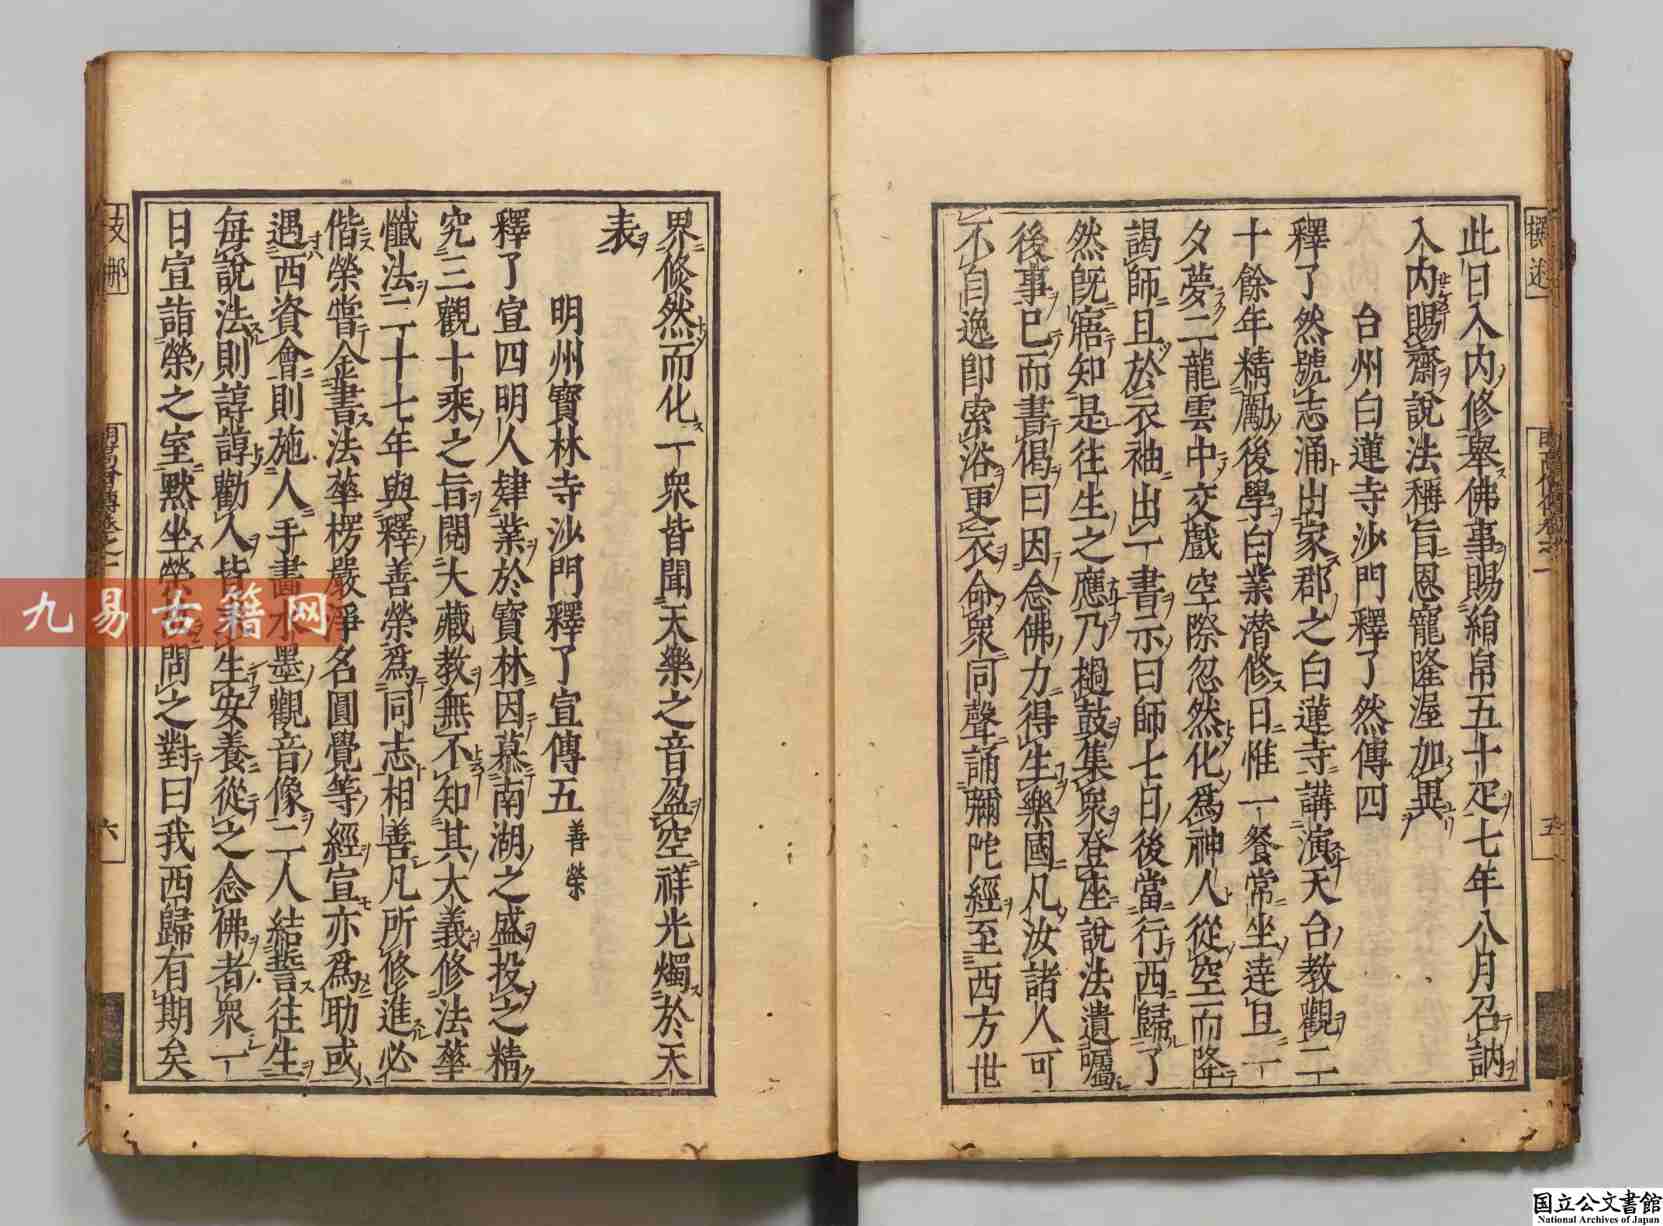 此日入内修舉佛事賜絹帛五十疋七年八月召訥
入内賜齋說法稱旨恩寵隆渥加異
台州白蓮寺沙門釋了然傳四
釋了然號志涌出家郡之白蓮寺講演天台教觀二
十餘年精勵後學白業潜修日惟一餐常坐達旦一
夕夢二龍雲中交戲空際忽然化爲神人從空而降
謁師且於衣袖出一書示曰師七日後當行西歸了
然既寤知是往生之應乃撾鼓集衆登座說法遺囑
後事已而書偈曰因念佛力得生樂國凡汝諸人可
不自逸即索浴更衣命衆同聲誦彌陀經至西方世
界倐然而化一衆皆聞天樂之音盈空祥光燭於天
表
明州寶林寺沙門釋了宣傳五 善榮
釋了宣四明人肄業於寶林因慕南湖之盛投之精
究三觀十乘之旨閱大藏教無不知其大義修法華
懺法二十七年與釋善榮爲同志相善凡所修進必
偕榮嘗金書法華楞嚴淨名圓覺等經宣亦爲助或
遇西資會則施人手畫水墨觀音像二人結誓往生
每說法則諄諄勸人皆生安養從之念佛者衆一
日宣詣榮之室黙坐榮問之對曰我西歸有期矣
撰述
五
支那
六
九易古籍网
国立公文書館
National Archives of Japan